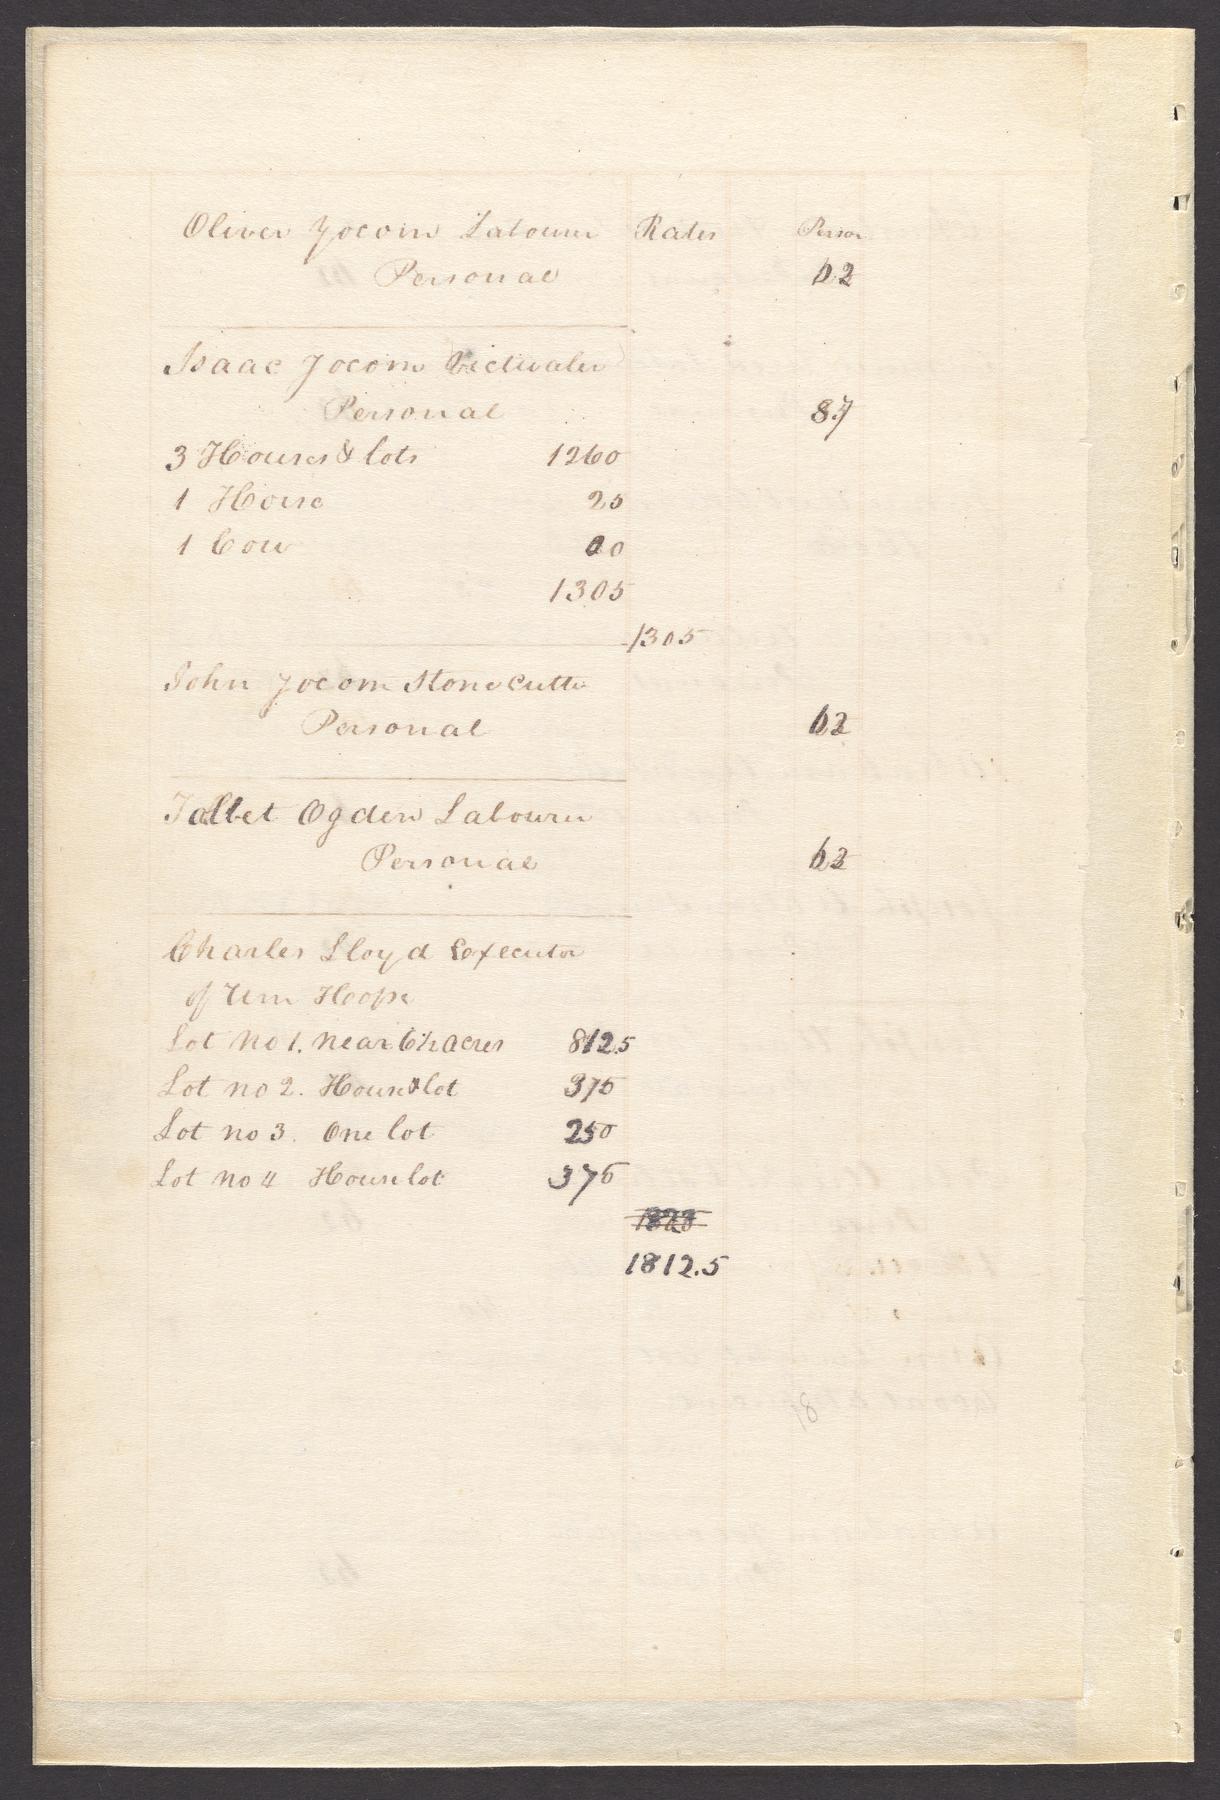 Oliver Yocom Labourer Rates Person
Personal 62
Isaac Yocom Victualer
Personal 87
3 Houses & lots 1260
1 Horse 25
1 Cow 20
1305
1305
John Yocom Stonecutter
Personal 62
Talbet Ogden Labourer
Personal 62
Charles Lloyd Executor
of Wm Hoops
Lot No 1. near 6½ acres 812.5
Lot no 2. House & lot 375
Lot no 3. One lot 250
Lot no 4 House lot 375
1812.5
81